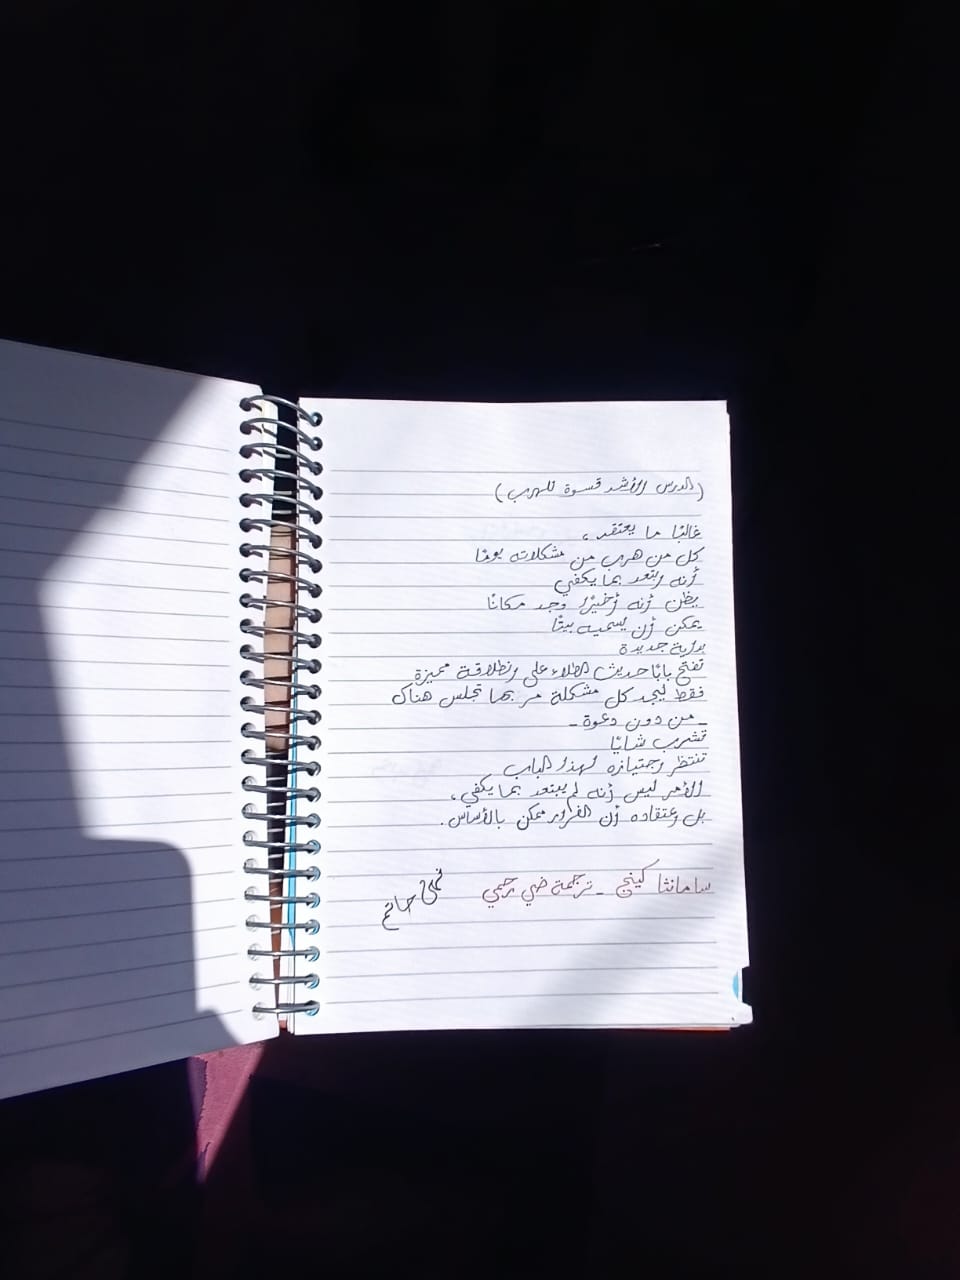 (الدرس الأشد قسوة للهرب)
غالبًا ما يعتقد،
كل من هرب من مشكلاته يومًا
أنه ابتعد بما يكفي
يظن أنه أخيرًا وجد مكانًا
يمكن أن يسميه بيتًا
بداية جديدة
تفتح بابًا حديث الطلاء على انطلاقة مميزة
فقط ليجد كل مشكلة مر بها تجلس هناك
_ من دون دعوة _
تشرب شايًا
تنتظر اجتيازه لهذا الباب
الأمر ليس أنه لم يبتعد بما يكفي،
بل اعتقاده أن الفرار ممكن بالأساس.
سامانثا كينج _ ترجمة ضي رحمي
حاتم